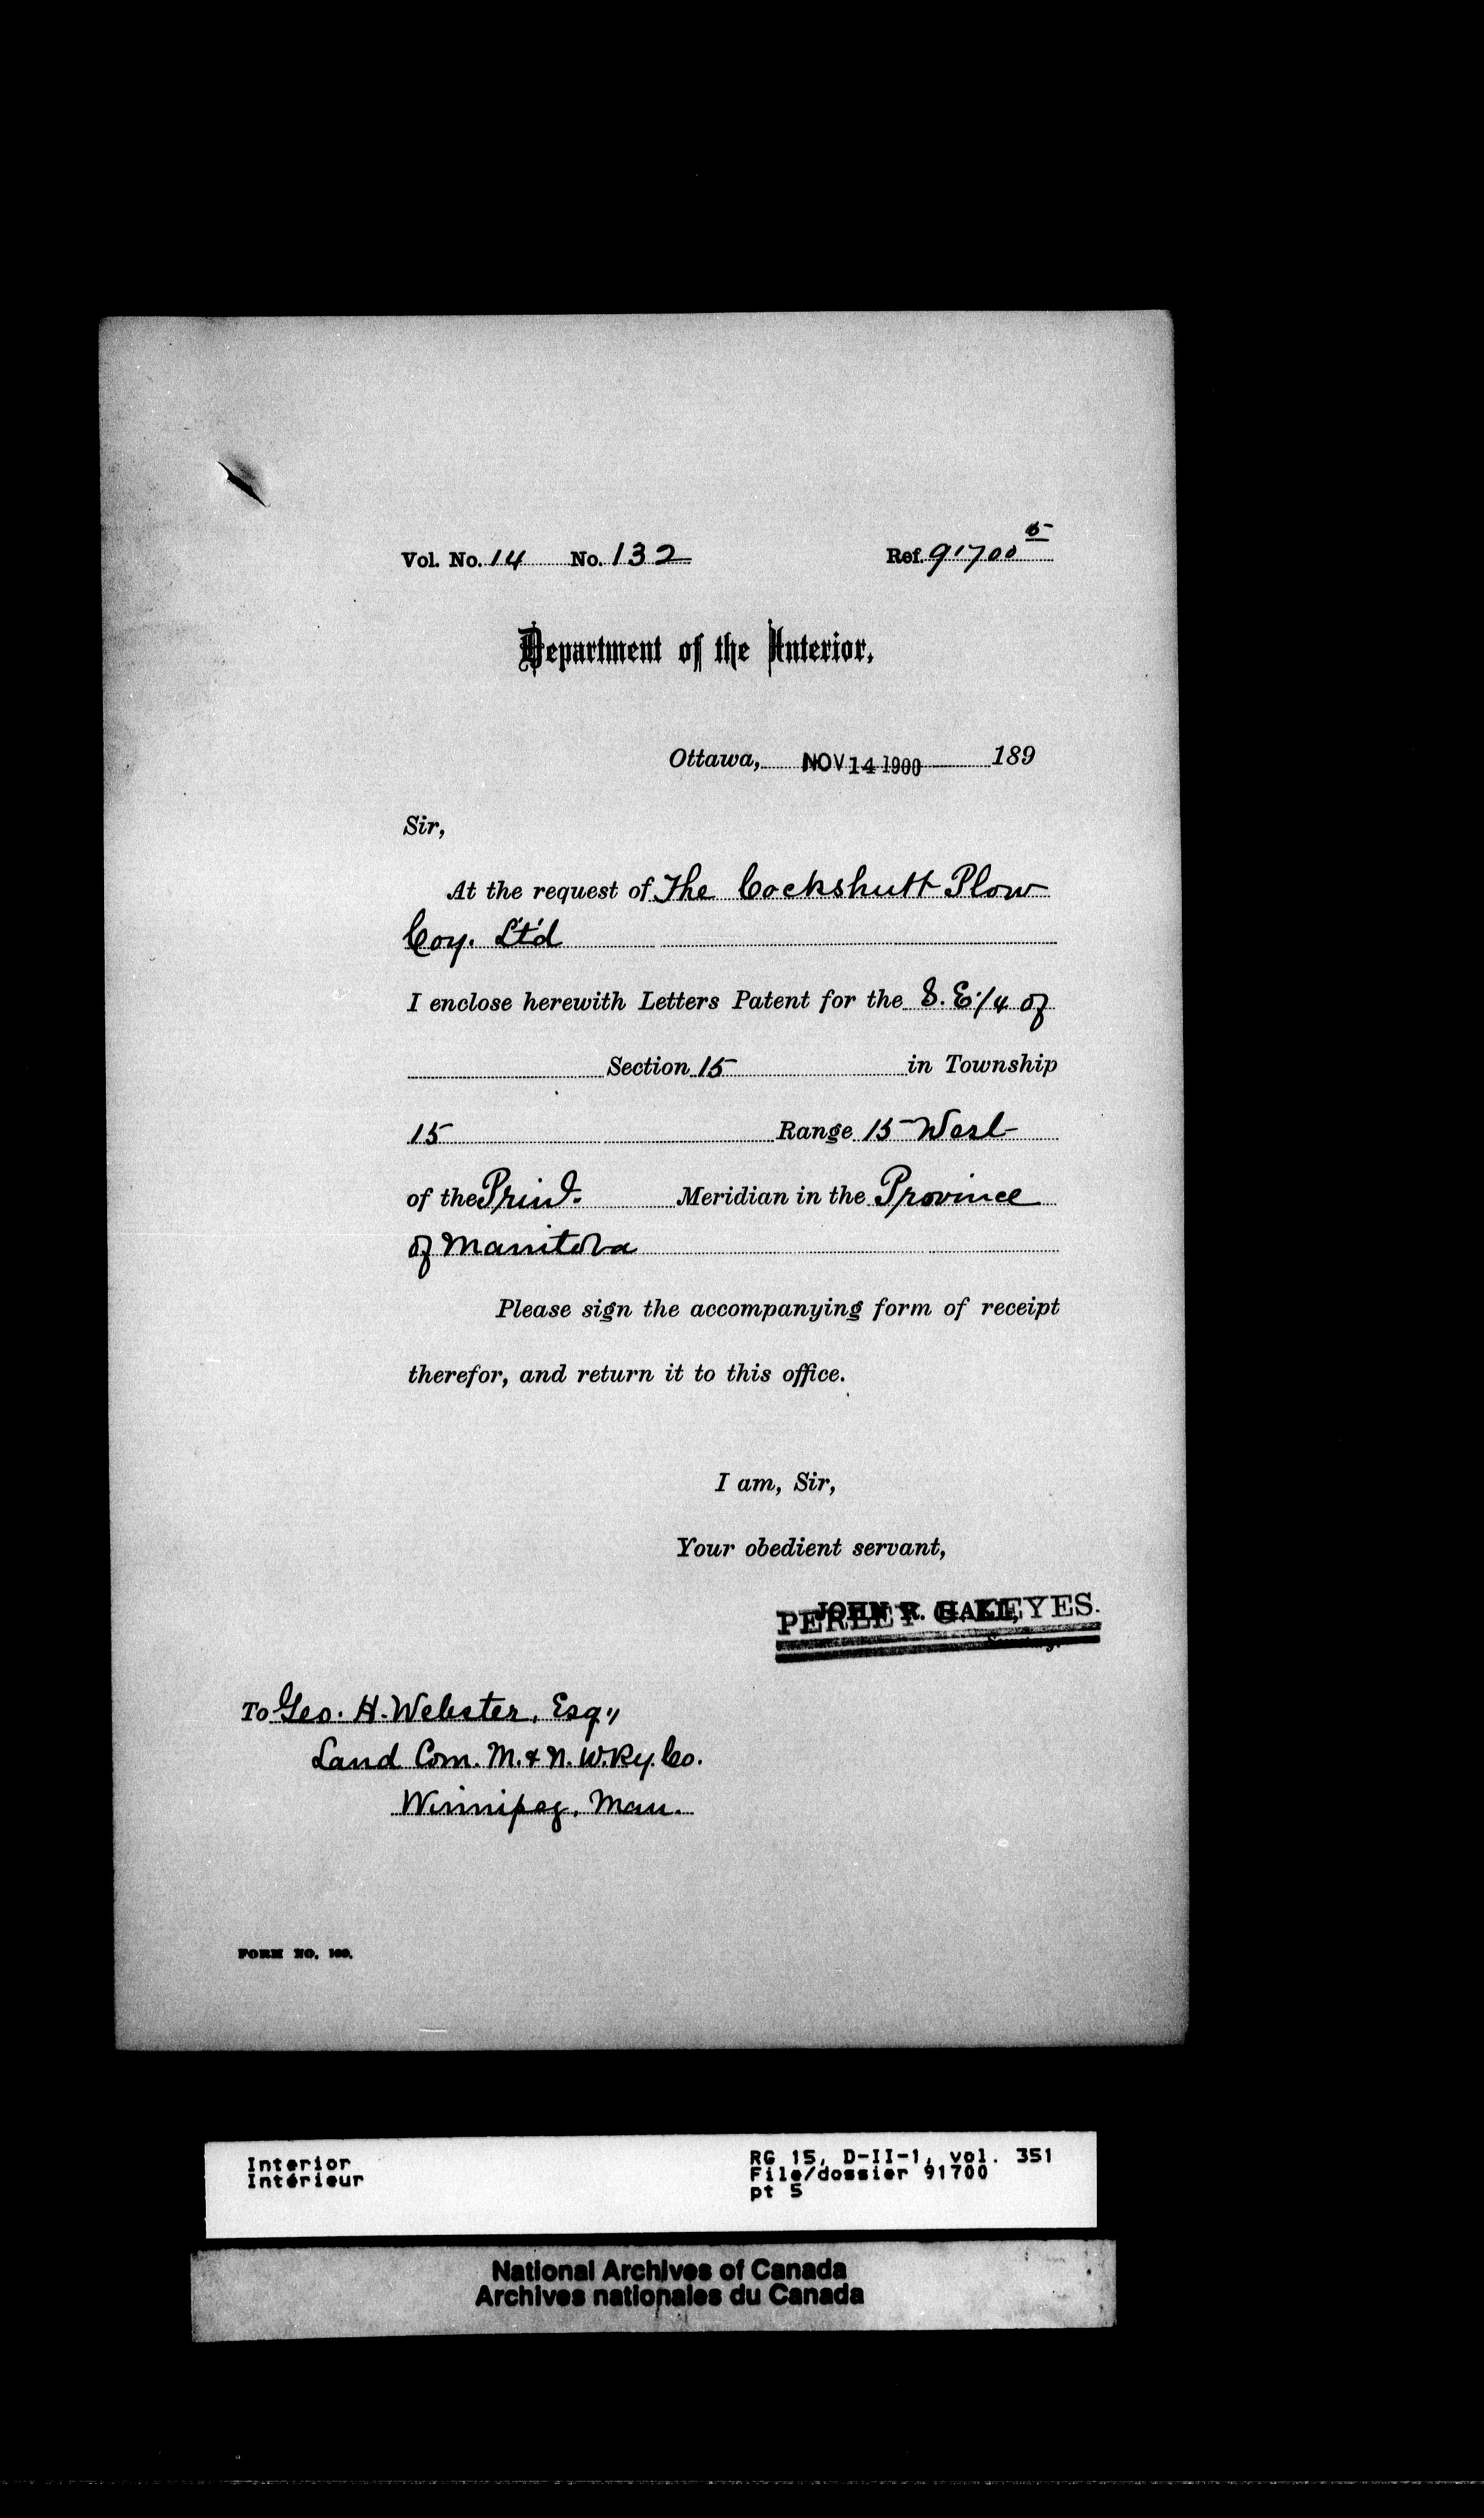 5
Vol. No. 14 No. 132 Ref. 91700
Department of the Interior,
Ottawa, NOV 14 1900 189
Sir,
At the request of The Cockshutt Plow
Coy. Lt'd
I enclose herewith Letters Patent for the S. E. 1/4 of
Section 15 in Township
15 Range 15 West
of the Prin'l. Meridian in the Province
of Manitoba
Please sign the accompanying form of receipt
therefor, and return it to this office.
I am, Sir,
Your obedient servant,
PERLEY G. KEYES.
JOHN R. HALL,
Secretary.
To Geo. H. Webster, Esq.,
Land Com. M. & N. W. Ry. Co.
Winnipeg, Man.
FORM NO. 169.
Interior RG 15, D-II-1, vol. 351
Intérieur File/dossier 91700
pt 5
National Archives of Canada
Archives nationales du Canada